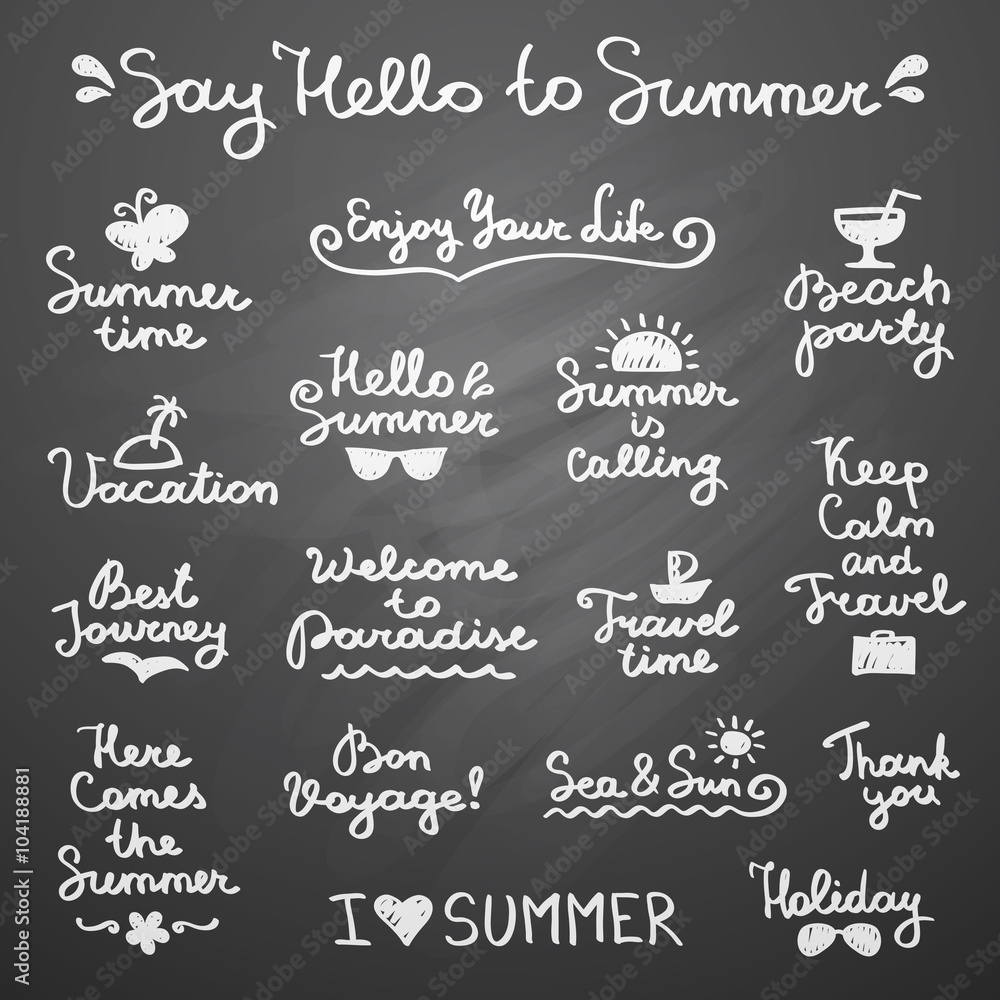 Say Hello to Summer
Enjoy Your Life
Summer
time
Beach
party
Hello
Summer
Summer
is
calling
Vacation
Keep
Calm
and
Travel
Best
Journey
Welcome
to
Paradise
Travel
time
Here
Comes
the
Summer
Bon
Voyage!
Sea & Sun
Thank
you
I SUMMER
Holiday
Adobe Stock | #104188881
Adobe Stock